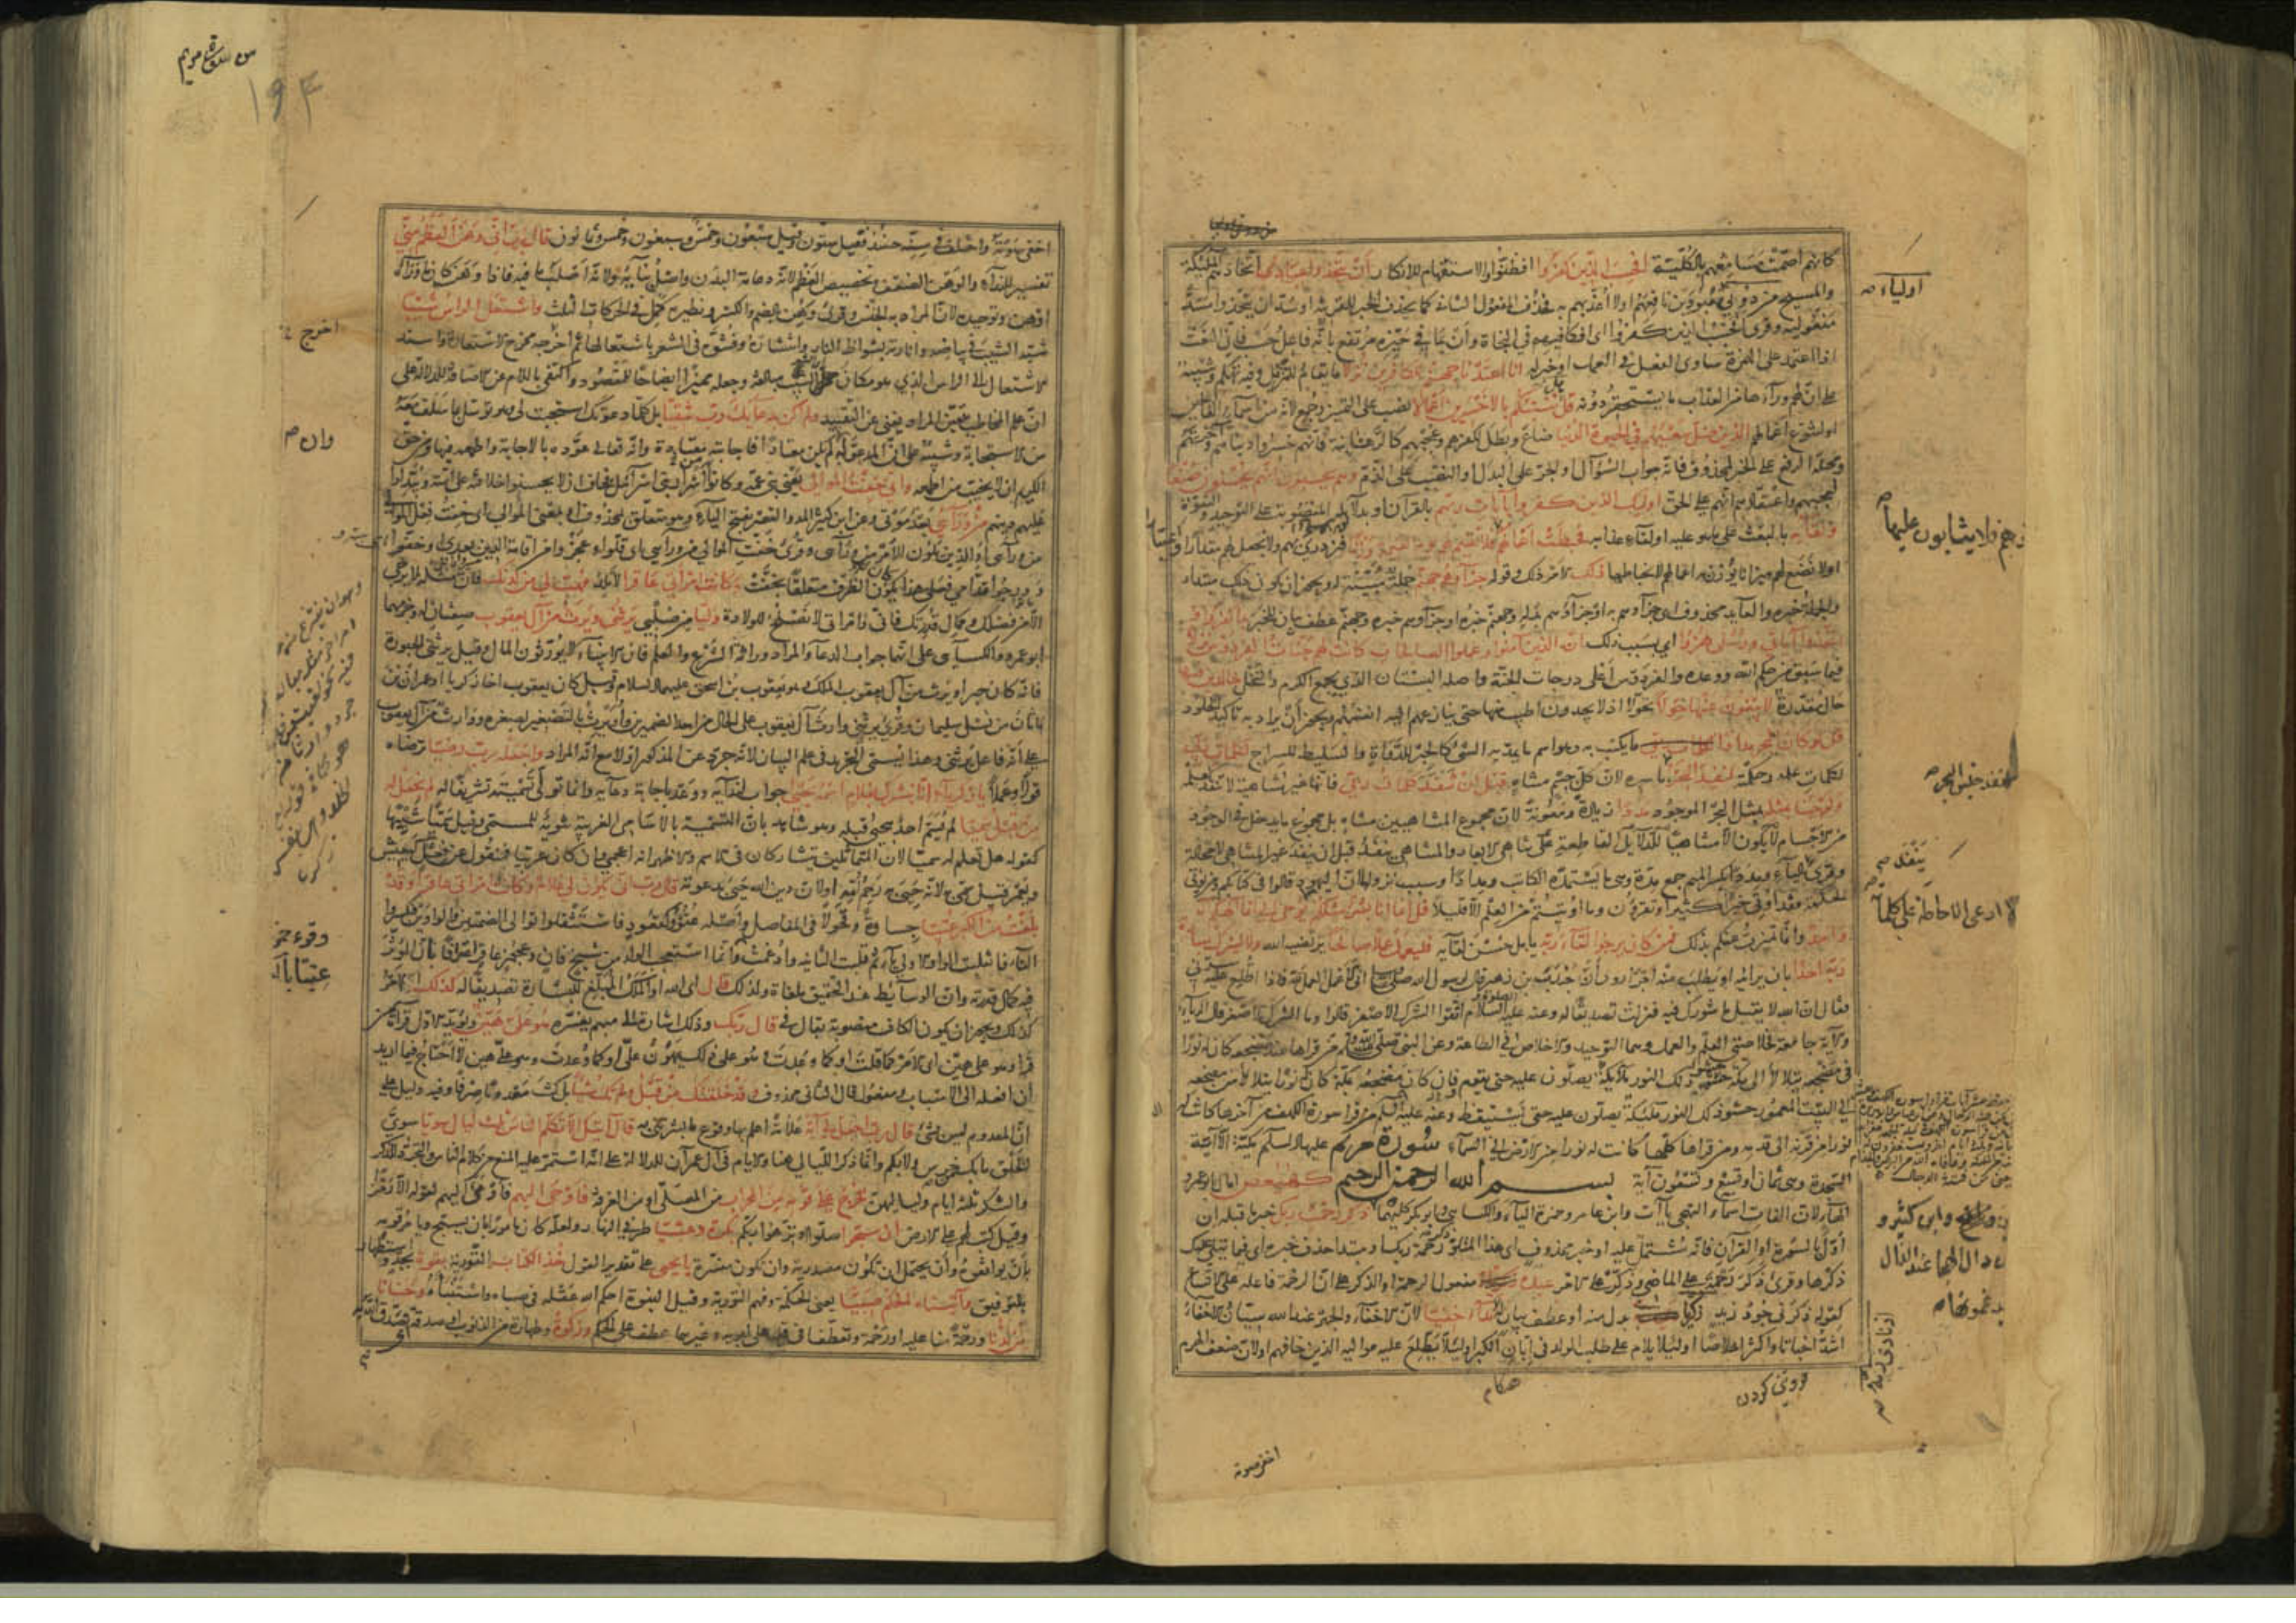 كانهم أصمّت مسامعهم بالكلّيّة افحسب الذين كفروا افظنوا والاستفهام للانكار أن يتخذوا عبادي اتخاذهم الملئكة
والمسيح من دوني معبودين نافعهم اولا أعذبهم به فحذف المفعول الثاني كما يحذف الخبر للقرينة او سدّ أن يتخذوا مسدّ
مفعوليه وقرئ أفحسب الذين كفروا اى افكافيهم في النجاة وأن بما في حيّزه مرتفع بانه فاعل حسب فان النعت
اذا اعتمد على الهمزة ساوى الفعل في العمل او خبر له انا اعتدنا جهنم للكافرين نزلا ما يقام للنزيل وفيه تهكم وتنبيه
على ان لهم وراءها من العذاب ما يستحقر دونه قل هل ننبئكم بالاخسرين أعمالا نصب على التمييز وجمع لانه من اسماء الفاعلين
او لتنوع اعمالهم الذين ضل سعيهم في الحيوة الدنيا ضاع وبطل لكفرهم وعجبهم كالرهبانية فانهم خسروا دنياهم وآخرتهم
ومحله الرفع على الخبر لمحذوف فانه جواب السؤال او الجر على البدل او النصب على الذم وهم يحسبون انهم يحسنون صنعا
لعجبهم واعتقادهم انهم على الحق اولئك الذين كفروا بآيات ربهم بالقرآن او بدلائله المنصوبة على التوحيد والنبوة
ولقائه بالبعث على ما هو عليه او لقاء عذابه فحبطت أعمالهم فلا نقيم لهم يوم القيمة وزنا فنزدري بهم ولا نجعل لهم مقدارا واعتبارا
اولا نضع لهم ميزانا يوزن به اعمالهم لانحباطها ذلك الامر ذلك وقوله جزاؤهم جهنم جملة مبينة له ويجوز أن يكون ذلك مبتدأ
والجملة خبره والعائد محذوف اى جزاؤهم به او جزاؤهم بدله وجهنم خبره او جزاؤهم خبره وجهنم عطف بيان للخبر بما كفروا
واتخذوا آياتي ورسلي هزوا اي بسبب ذلك ان الذين آمنوا وعملوا الصالحات كانت لهم جنات الفردوس نزلا
فيما سبق من حكم الله ووعده والفردوس أعلى درجات الجنة واصله البستان الذي يجمع الكرم والنخل خالدين فيها
حال مقدرة لا يبغون عنها حولا تحولا اذ لا يجدون اطيب منها حتى ينازعهم اليه انفسهم ويجوز أن يراد به تأكيد الخلود
قل لو كان البحر مدادا ما يكتب به وهو اسم ما يمد به الشئ كالحبر للدواة والسليط للسراج لكلمات ربي
لكلمات علمه وحكمته لنفد البحر باسره لان كل جسم متناه قبل ان تنفد كلمات ربي فانها غير متناهية لا تنفد كعلمه
ولو جئنا بمثله بمثل البحر الموجود مددا زيادة ومعونة لان مجموع المتناهيين متناه بل مجموع ما يدخل في الوجود
من الاجسام لا يكون الا متناهيا للدلايل القاطعة على تناهى الابعاد والمتناهى ينفد قبل ان ينفد غير المتناهى لا محالة
وقرئ بالياء ومددا بكسر الميم جمع مدة وهى ما يستمده الكاتب ومدادا وسبب نزولها ان اليهود قالوا في كتابكم ومن يؤت
الحكمة فقد اوتى خيرا كثيرا وتقرؤن وما اوتيتم من العلم الا قليلا قل انما انا بشر مثلكم يوحى الي انما الهكم اله
واحد وانما تميزت عنكم بذلك فمن كان يرجوا لقاء ربه يأمل حسن لقائه فليعمل عملا صالحا يرتضيه الله ولا يشرك بعبادة
ربه احدا بان يرائيه او يطلب منه اجرا روى أن جندب بن زهير قال لرسول الله انى لأعمل العمل لله فاذا اطلع عليه سرني
فقال ان الله لا يقبل ما شورك فيه فنزلت تصديقا له وعنه عليه السلام اتقوا الشرك الاصغر قالوا وما الشرك الاصغر قال الرياء
والآية جامعة لخلاصتى العلم والعمل وهما التوحيد والاخلاص في الطاعة وعن النبي من قرأها عند مضجعه كان له نورا
في مضجعه يتلألأ الى مكة حشو ذلك النور ملائكة يصلون عليه حتى يقوم فان كان مضجعه بمكة كان له نورا يتلألأ من مضجعه
الى البيت المعمور حشو ذلك النور ملئكة يصلون عليه حتى يستيقظ وعنه عليه السلم من قرأ سورة الكهف من آخرها كانت له
نورا من قرنه الى قدمه ومن قرأها كلها كانت له نورا من الارض الى السماء سورة مريم عليها السلم مكية الا آية
السجدة وهى ثمان او تسع وتسعون آية بسم الله الرحمن الرحيم كهيعص امال ابو عمرو
الهاء لان الفات اسماء التهجي ياآت وابن عامر وحمزة الياء والكسائي وابو بكر كليهما ذكر رحمت ربك خبر ما قبله ان
اوّل بالسورة او القرآن فانه مشتمل عليه او خبر محذوف اى هذا المتلو ذكر رحمة ربك او مبتدأ حذف خبره اى فيما يتلى عليك
ذكرها وقرئ ذكر رحمة على الماضي وذكر على الامر عبده مفعول الرحمة او الذكر على ان الرحمة فاعله على الاتساع
كقولك ذكرني جود زيد زكريا بدل منه او عطف بيان له نداء خفيا لان الاخفاء والجهر عند الله سيان والاخفاء
اشد اخباتا واكثر اخلاصا او لئلا يلام على طلب الولد في ابان الكبر او لئلا يطلع عليه مواليه الذين خافهم او لان ضعف الهرم
اولياء
فيزدرى بهم ولا يثابون عليها
لنفد جنس البحر
ينفد
لا ادعى الاحاطة على كلماته
نافع وابن كثير و
دال الهجا عند الذال
يدغمونها
من سورة مريم
١٩٤
اخفى صوته واختلف في سنه حينئذ فقيل ستون وقيل سبعون وخمس وسبعون وخمس وثمانون قال رب اني وهن العظم مني
تفسير للنداء والوهن الضعف وتخصيص العظم لانه دعامة البدن واصل بنائه ولانه اصلب ما فيه فاذا وهن كان ما وراءه
اوهن وتوحيده لان المراد به الجنس وقرئ وهن بالضم والكسر ونظيره كمل في الحركات الثلث واشتعل الراس شيبا
شبه الشيب في بياضه وانارته بشواظ النار وانتشاره وفشوه في الشعر باشتعالها ثم اخرجه مخرج الاستعارة واسند
الاشتعال الى الراس الذي هو مكان الشيب مبالغة وجعله مميزا ايضاحا للمقصود واكتفى باللام عن الاضافة للدلالة على
ان علم المخاطب بتعين المراد يغنى عن التقييد ولم اكن بدعائك رب شقيا بل كلما دعوتك استجبت لي وهو توسل بما سلف معه
من الاستجابة وتنبيه على ان المدعو له وان لم يكن معتادا فاجابته معتادة وانه تعالى عوده بالاجابة واطمعه فيها ومن حق
الكريم ان لا يخيب من اطمعه واني خفت الموالي يعني بني عمه وكانوا اشرار بني اسرائيل فخاف ان لا يحسنوا خلافته على امته ويبدلوا
عليهم دينهم من ورآئي بعد موتى وعن ابن كثير المد والقصر بفتح الياء وهو متعلق بمحذوف او بمعنى الموالي اى خفت فعل الموالي
من ورآئى او الذين يلون الامر من ورآئى وقرئ خفت الموالي من ورائي اى قلوا وعجزوا عن اقامة الدين بعدى او خفوا
ودرجوا قدامي فعلى هذا يكون الظرف متعلقا بخفت وكانت امرأتي عاقرا لا تلد فهب لي من لدنك فان مثله لا يرجى
الا من فضلك وكمال قدرتك فاني وامرأتي لا نصلح للولادة وليا من صلبي يرثني ويرث من آل يعقوب صفتان له وجزمهما
ابو عمرو والكسائى على انهما جواب الدعاء والمراد وراثة الشرع والعلم فان الانبياء لا يورثون المال وقيل يرثني الحبورة
فانه كان حبرا ويرث من آل يعقوب الملك وهو يعقوب بن اسحق عليهما السلام وقيل كان يعقوب اخا زكريا او عمران بن
ماثان من نسل سليمان وقرئ يرثني وارث آل يعقوب على الحال من احد الضميرين وأويرث بالتصغير لصغره ووارث من آل يعقوب
على أنه فاعل يرثني وهذا يسمى التجريد في علم البيان لانه جرد عن المذكور اولا مع انه المراد واجعله رب رضيا ترضاه
قولا وعملا يا زكريا انا نبشرك بغلام اسمه يحيى جواب لندائه ووعد باجابة دعائه وانما تولى تسميته تشريفا له لم نجعل له
من قبل سميا لم يسم احد بيحيى قبله وهو شاهد بان التسمية بالاسامى الغريبة تنويه للمسمى وقيل سميا شبيها
كقوله هل تعلم له سميا لان المتماثلين يتشاركان في الاسم والاظهر انه اعجمي وان كان عربيا فمنقول عن فعل كيعيش
ويعمر وقيل سمى به لانه حيى به رحم امه او لان دين الله حيى بدعوته قال رب انى يكون لي غلام وكانت امرأتي عاقرا وقد
بلغت من الكبر عتيا جساوة وقحولا في المفاصل واصله عتوو كقعود فاستثقلوا توالى الضمتين والواوين فكسروا
التاء فانقلبت الواو الاولى ياء ثم قلبت الثانية وادغمت وانما استعجب الولد من شيخ فان وعجوز عاقر اعترافا بان المؤثر
فيه كمال قدرته وان الوسائط عند التحقيق ملغاة ولذلك قال اى الله او الملك المبلغ للبشارة تصديقا له كذلك الامر
كذلك ويجوز ان يكون الكاف منصوبة بقال في قال ربك وذلك اشارة الى مبهم يفسره هو علي هين ويؤيد الاول قراءة من
قرأ وهو على هين اى الامر كما قلت او كما وعدت وهو على ذلك يهون علي او كما وعدت وهو علي هين لا احتاج فيما اريد
أن افعله الى الاسباب ومفعول قال الثاني محذوف وقد خلقتك من قبل ولم تك شيئا بل كنت معدوما صرفا وفيه دليل على
ان المعدوم ليس بشئ قال رب اجعل لي آية علامة اعلم بها وقوع ما بشرتني به قال آيتك الا تكلم الناس ثلث ليال سويا سوي
الخلق ما بك من خرس ولا بكم وانما ذكر الليالي هنا والايام في آل عمران للدلالة على انه استمر عليه المنع من كلام الناس والتجرد للذكر
والشكر ثلثة ايام ولياليهن فخرج على قومه من المحراب من المصلى او من الغرفة فاوحى اليهم فاومى اليهم لقوله الا رمزا
وقيل كتب لهم على الارض أن سبحوا صلوا او نزهوا ربكم بكرة وعشيا طرفي النهار ولعله كان مامورا بان يسبح ويامر قومه
بان يوافقوه وأن يحتمل ان تكون مصدرية وان تكون مفسرة يا يحيى على تقدير القول خذ الكتاب التورية بقوة بجد واستظهار
بالتوفيق وآتيناه الحكم صبيا يعني الحكمة وفهم التورية وقيل النبوة احكم الله عقله في صباه واستنبأه وحنانا
من لدنا ورحمة منا عليه او رحمة وتعطفا في قلبه على ابويه وغيرهما عطف على الحكم وزكوة وطهارة من الذنوب او صدقة
اخرج
وان
وقرئ حمزة
عتيا بالكسر